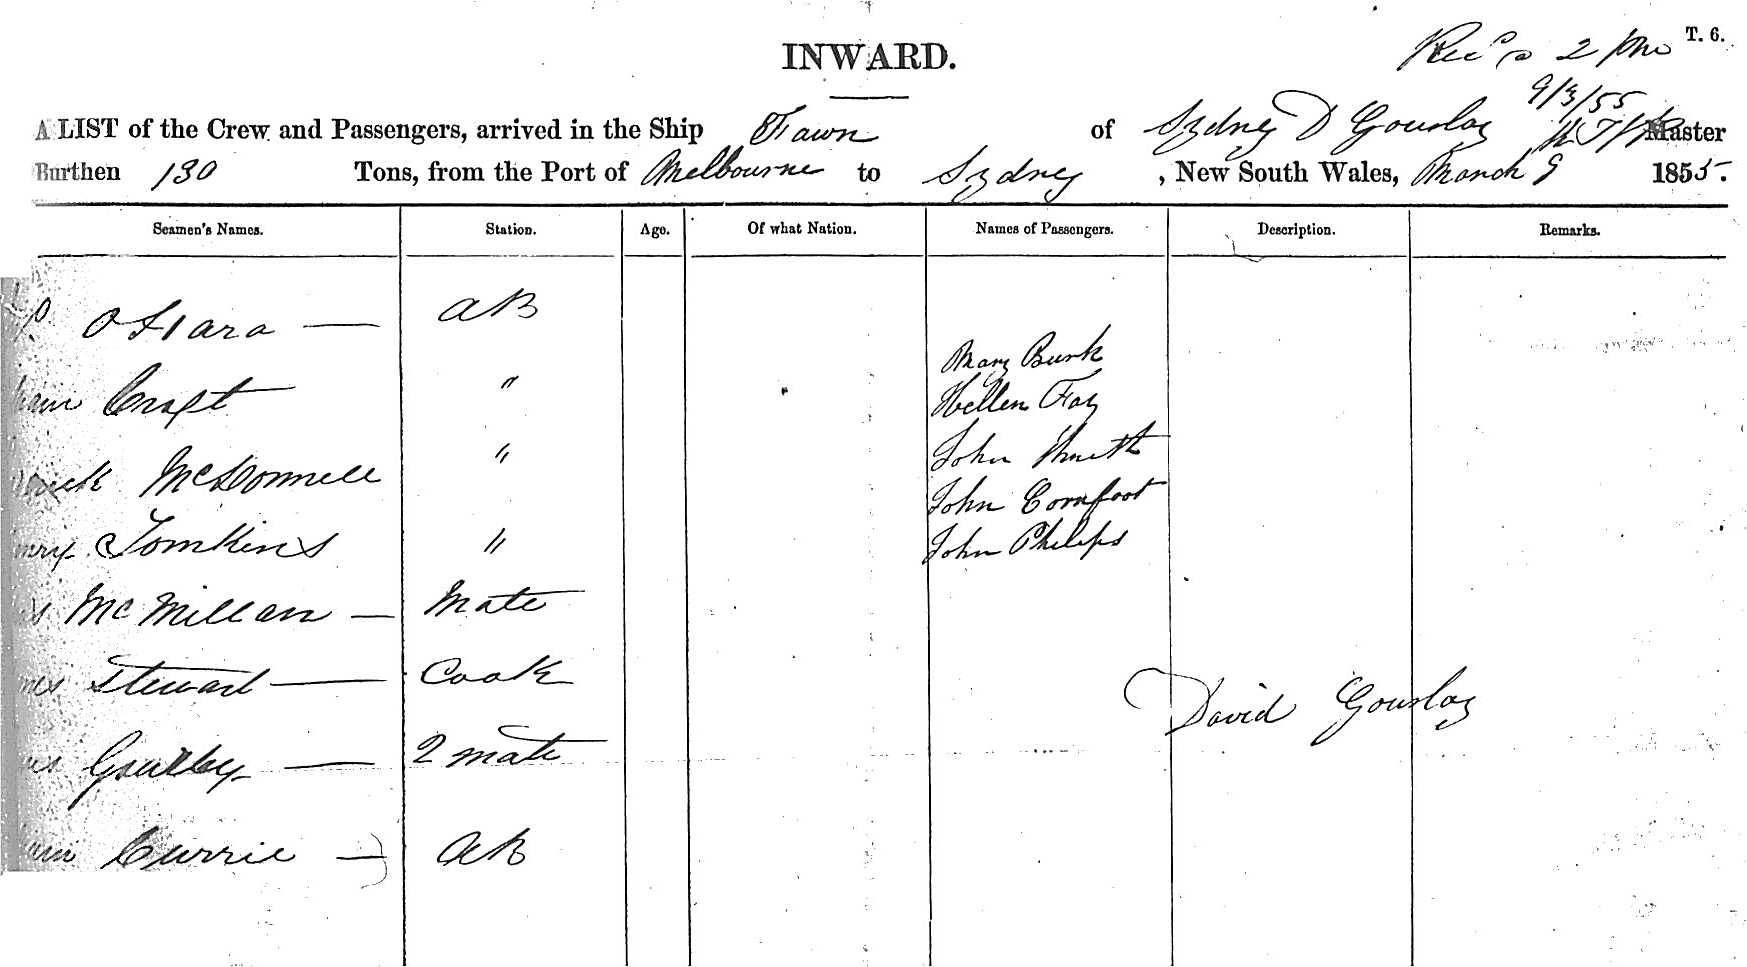 T. 6.
INWARD.
Rec'd 2 pm
9/3/55
A LIST of the Crew and Passengers, arrived in the Ship Fawn of Sydney D Gourlay Master
Burthen 130 Tons, from the Port of Melbourne to Sydney, New South Wales, March 9 1855.
Seamen's Names. Station. Age. Of what Nation. Names of Passengers. Description. Remarks.
O Hara — AB
Mary Burk
Craft "
Hellen Fay
John Smith
McDonnell "
John Cornfoot
Tomkins "
John Philips
McMillan — Mate
Stewart — Cook
David Gourlay
Gourlay — 2 mate
Currie — AB